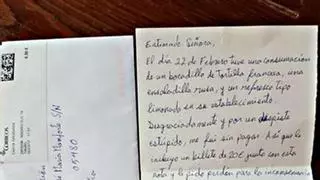 Estimada Señora,
El día 22 de Febrero tuve una consumición
de un bocadillo de Tortilla francesa, una
ensaladilla rusa, y un refresco tipo
limonada en su establecimiento.
Desgraciadamente y por un despiste
estúpido, me fui sin pagar. Así que le
incluyo un billete de 20€ junto con esta
nota y le pido perdón para la inconveniencia
CORREOS
María Manfredo S/N
05480